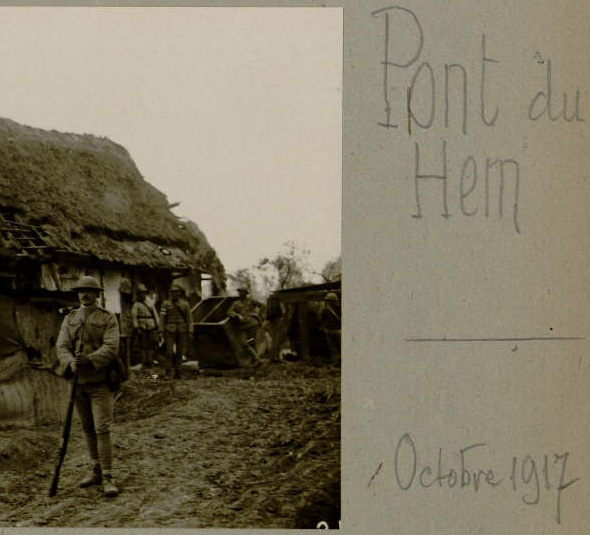 Pont du
Hem
Octobre 1917